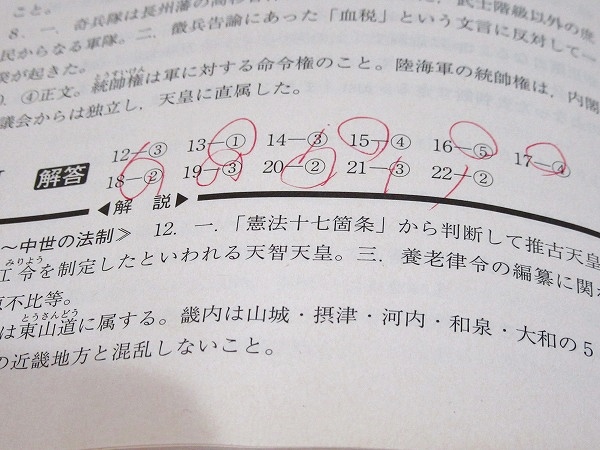 こと。
8．一．奇兵隊は長州藩の高杉
武士階級以外の庶
民からなる軍隊。二．徴兵告諭にあった「血税」という文言に反対して一
揆が起きた。
④正文。統帥権は軍に対する命令権のこと。陸海軍の統帥権は，内閣
議会からは独立し，天皇に直属した。
とうすいけん
解答
12―③ 13―① 14―③ 15―④ 16―⑤ 17―④
18―② 19―③ 20―② 21―③ 22―②
◀解 説▶
～中世の法制≫ 12．一．「憲法十七箇条」から判断して推古天皇
みりょう
江令を制定したといわれる天智天皇。三．養老律令の編纂に関
不比等。
とうさんどう
は東山道に属する。畿内は山城・摂津・河内・和泉・大和の5
の近畿地方と混乱しないこと。